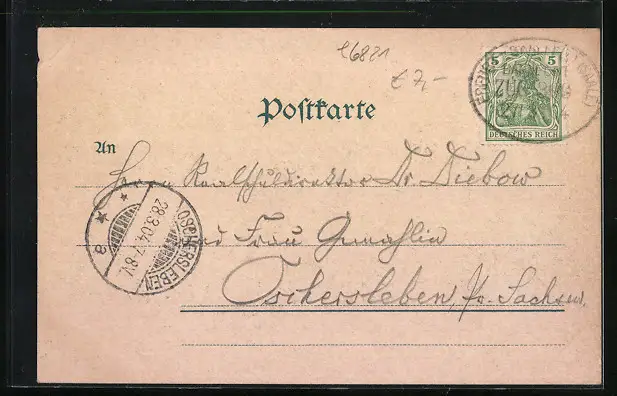 e6821
€ 7,-
5 5
DEUTSCHES REICH
Postkarte
An
Herrn Realschuldirektor Dr. Diebow
und Frau Gemahlin
Oschersleben, Pr. Sachsen.
OSCHERSLEBEN
28.3.04. 7-8V.
* * a